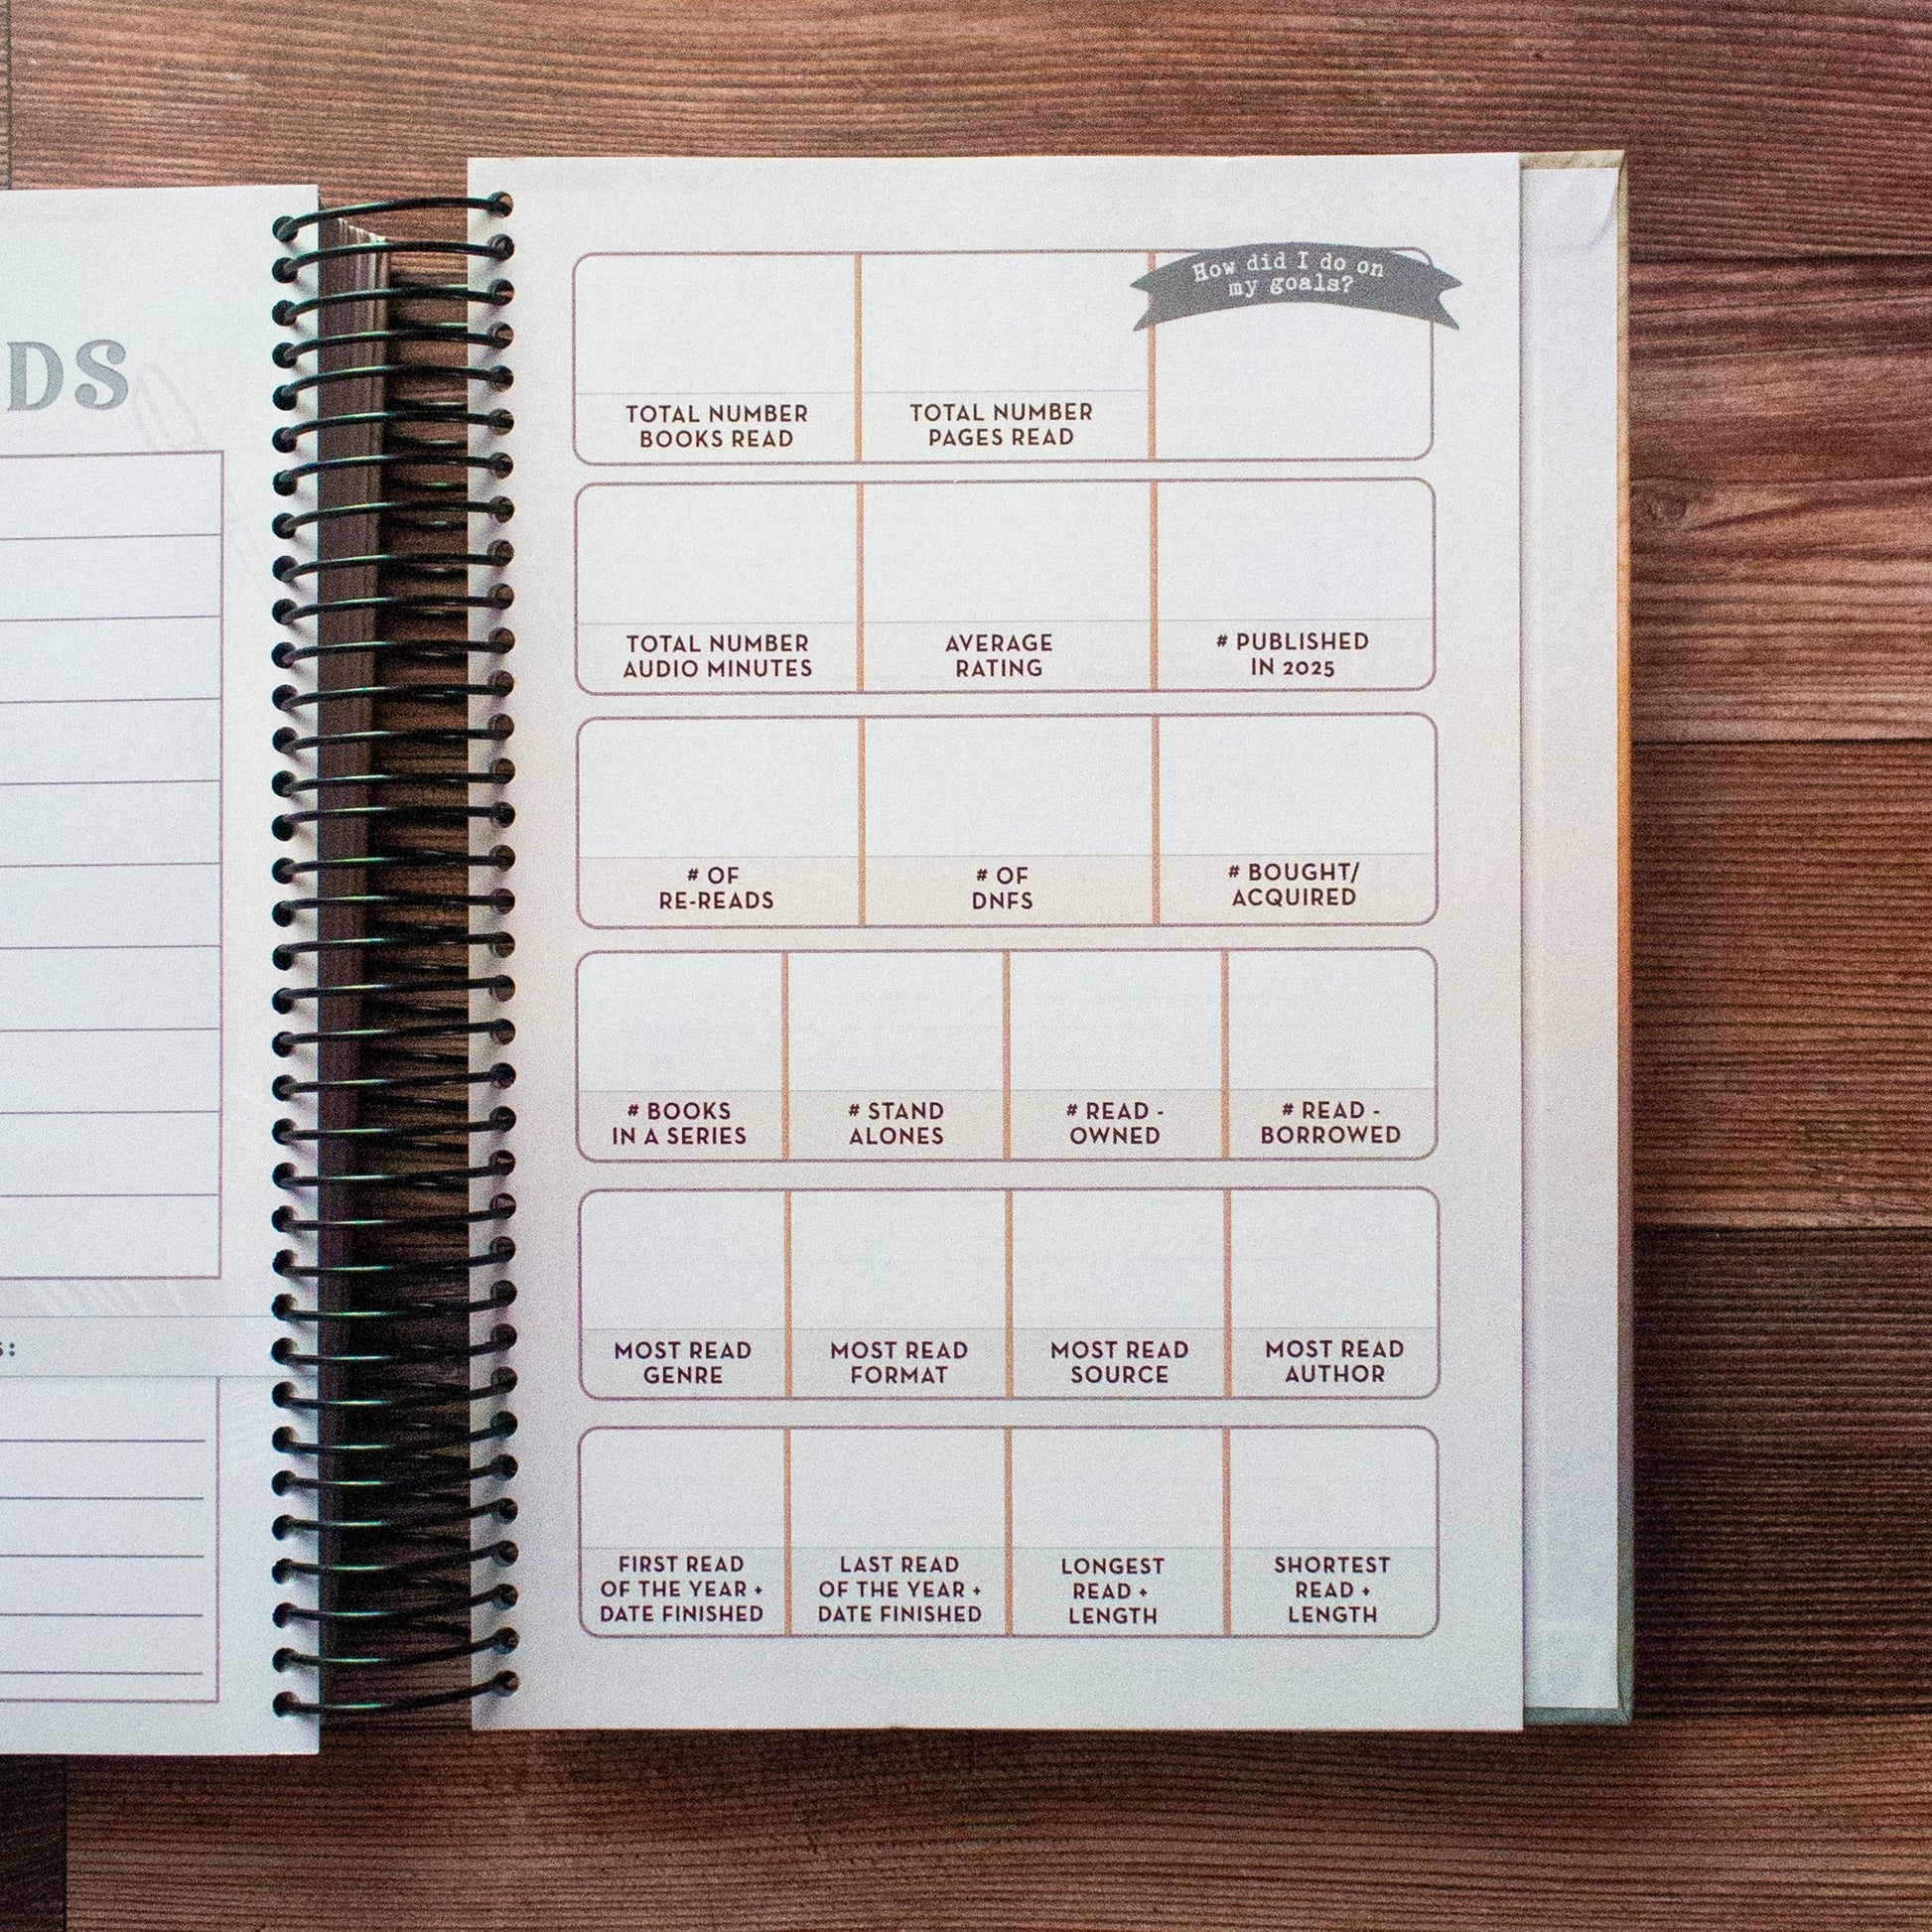 DS
s:
How did I do on
my goals?
TOTAL NUMBER
BOOKS READ
TOTAL NUMBER
PAGES READ
TOTAL NUMBER
AUDIO MINUTES
AVERAGE
RATING
# PUBLISHED
IN 2025
# OF
RE-READS
# OF
DNFS
# BOUGHT/
ACQUIRED
# BOOKS
IN A SERIES
# STAND
ALONES
# READ -
OWNED
# READ -
BORROWED
MOST READ
GENRE
MOST READ
FORMAT
MOST READ
SOURCE
MOST READ
AUTHOR
FIRST READ
OF THE YEAR +
DATE FINISHED
LAST READ
OF THE YEAR +
DATE FINISHED
LONGEST
READ +
LENGTH
SHORTEST
READ +
LENGTH